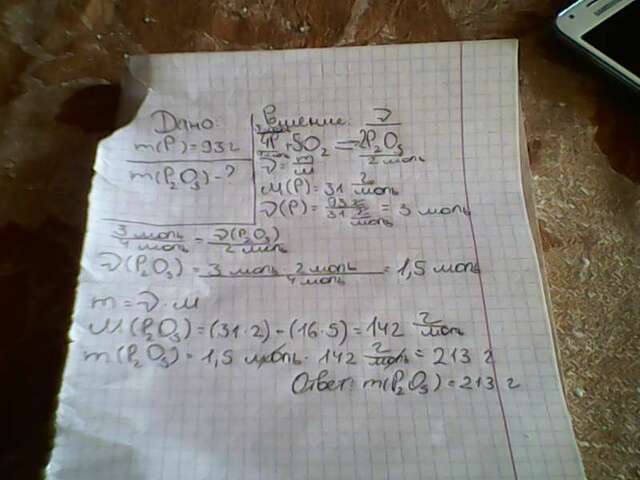 Дано:
m(P)=93г
m(P₂O₅)-?
Решение:
4P+5O₂=2P₂O₅
4 моль 2 моль
ν=m/M
M(P)=31 г/моль
ν(P)=93 г/31 г/моль=3 моль
3 моль/4 моль=ν(P₂O₅)/2 моль
ν(P₂O₅)=3 моль·2 моль/4 моль=1,5 моль
m=ν·M
M(P₂O₅)=(31·2)-(16·5)=142 г/моль
m(P₂O₅)=1,5 моль·142 г/моль=213 г
Ответ: m(P₂O₅)=213 г